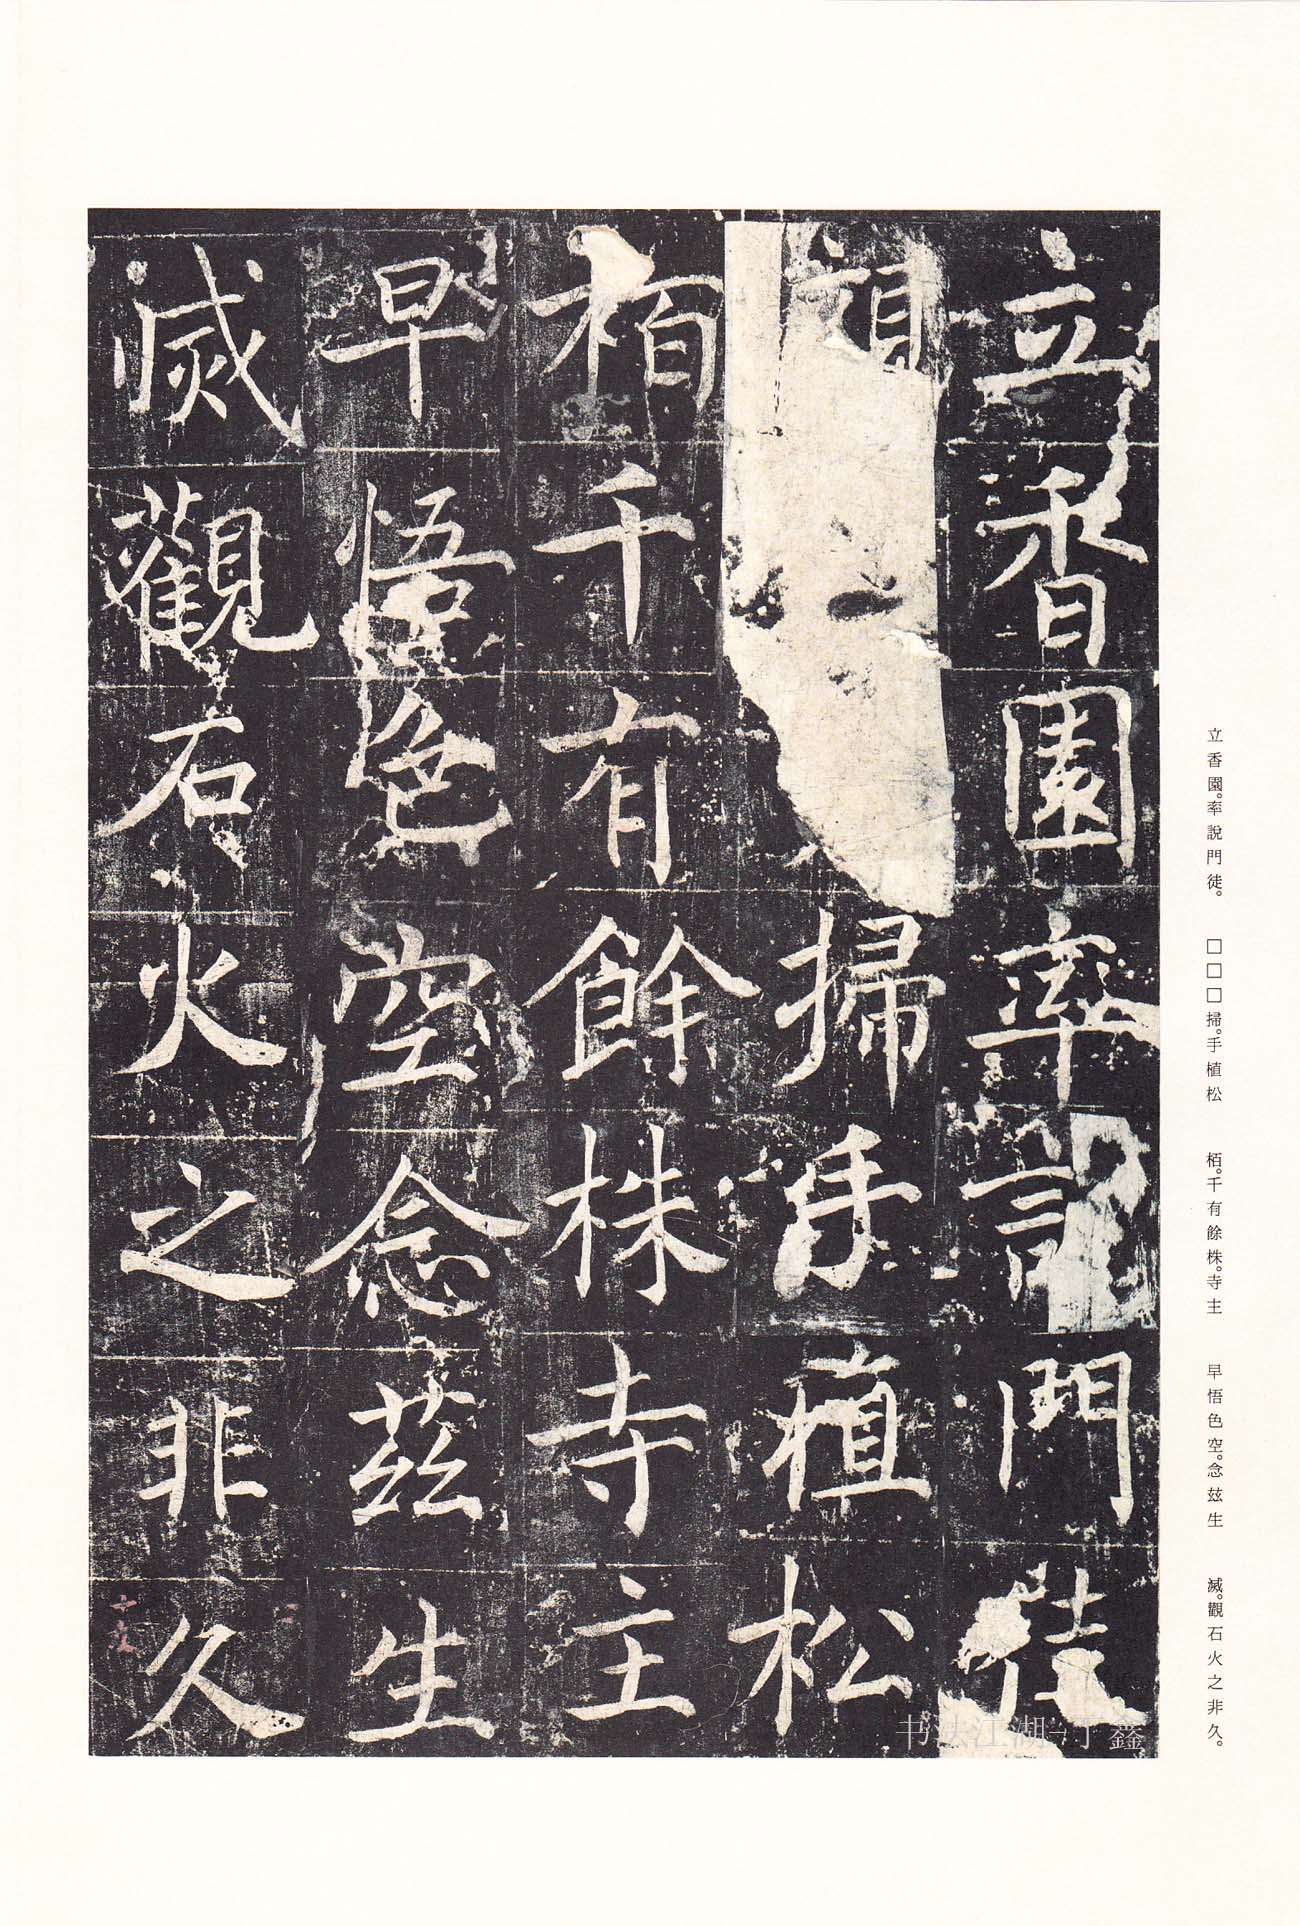 立香園率說門徒
掃手植松
栢千有餘株寺主
早悟色空念茲生
滅觀石火之非久
立香園。率說門徒。 □□□掃。手植松 栢。千有餘株。寺主 早悟色空。念茲生 滅。觀石火之非久。
书法江湖-丁鑫